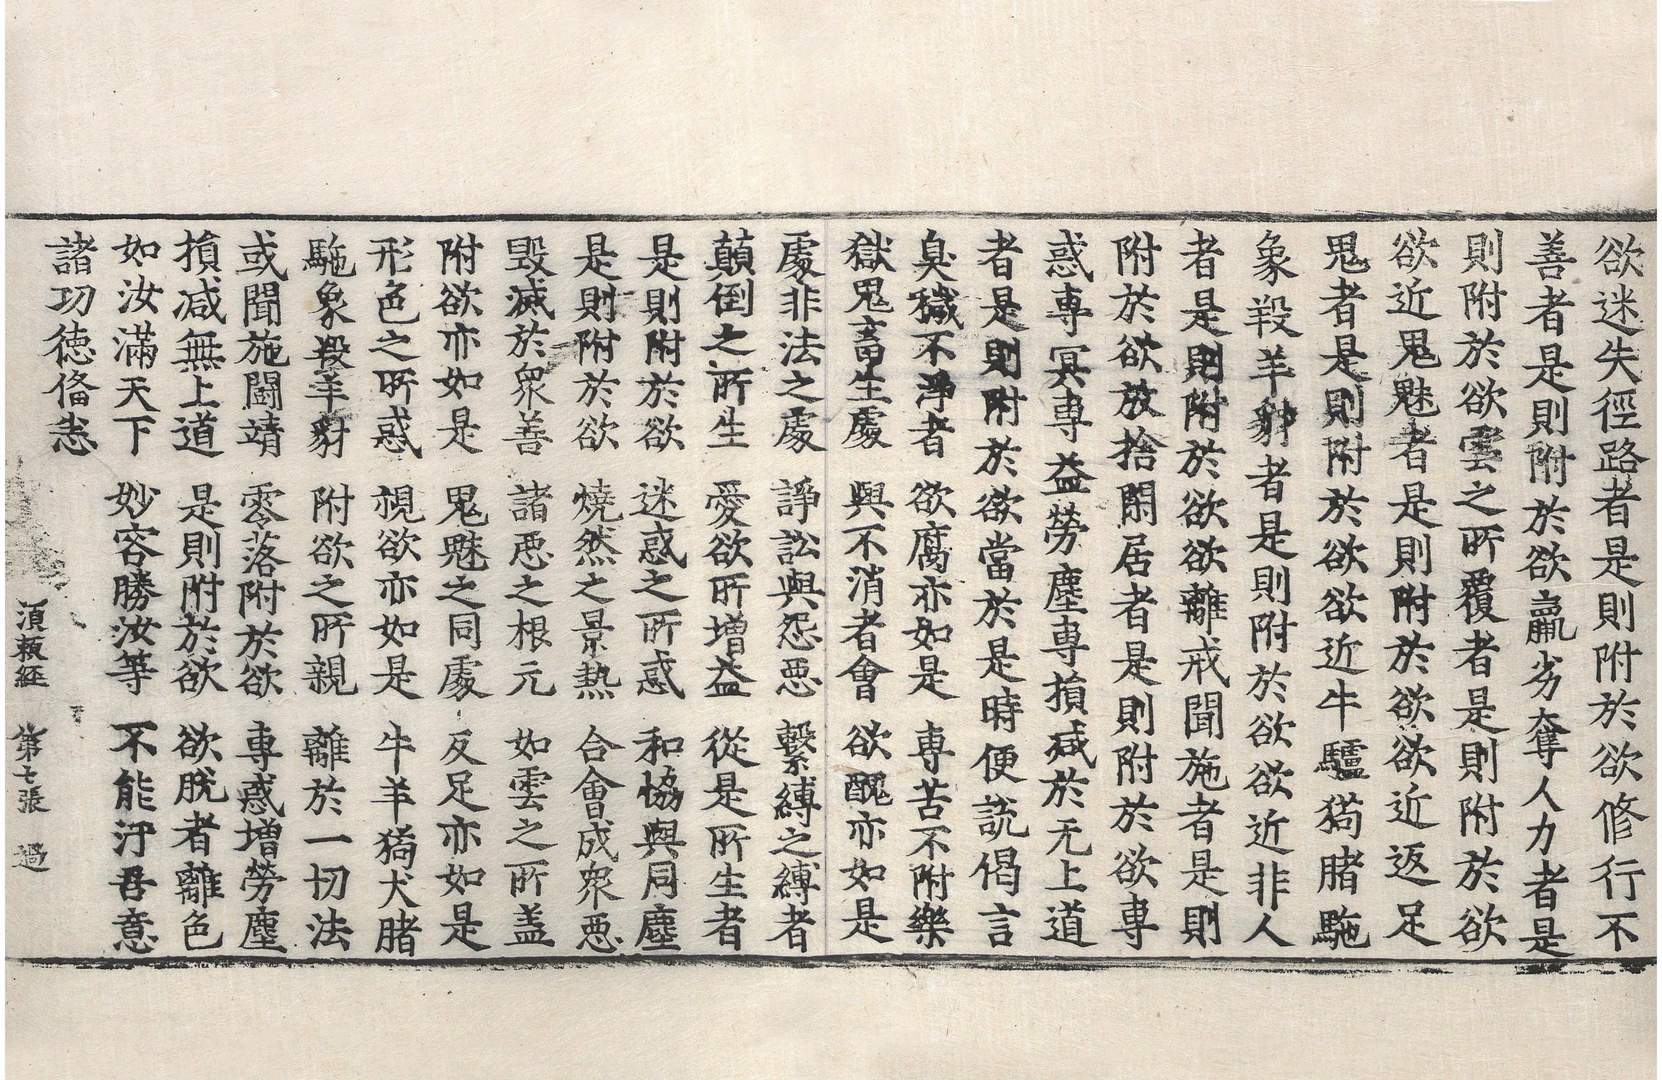 欲迷失徑路者是則附於欲修行不
善者是則附於欲羸劣奪人力者是
則附於欲雲之所覆者是則附於欲
欲近鬼魅者是則附於欲欲近返足
鬼者是則附於欲欲近牛驢猗賭駞
象羖羊豺者是則附於欲欲近非人
者是則附於欲欲離戒聞施者是則
附於欲放捨閑居者是則附於欲專
惑專冥專益勞塵專損減於无上道
者是則附於欲當於是時便說偈言
臭穢不淨者 欲腐亦如是 專苦不附樂
獄鬼畜生處 與不消者會 欲醜亦如是
處非法之處 諍訟與怨惡 繫縛之縛者
顛倒之所生 愛欲所增益 從是所生者
是則附於欲 迷惑之所惑 和協與同塵
是則附於欲 燒然之景熱 合會成衆惡
毀滅於衆善 諸惡之根元 如雲之所盖
附欲亦如是 鬼魅之同處 反足亦如是
形色之所惑 視欲亦如是 牛羊猗犬賭
駞象羖羊豺 附欲之所親 離於一切法
或聞施闘靖 零落附於欲 專惑增勞塵
損減無上道 是則附於欲 欲脫者離色
如汝滿天下 妙容勝汝等 不能汙吾意
諸功德俻悉
須賴經 第七張 過